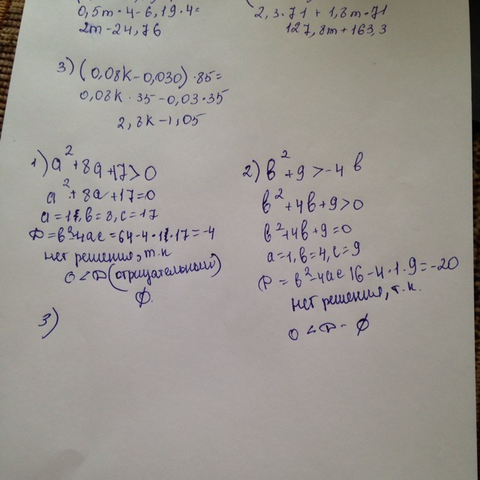 0,5m · 4 - 6,19 · 4 =
2m - 24,76
2,3 · 71 + 1,8m · 71
127,8m + 163,3
3) (0,08k - 0,030) · 85 =
0,08k · 35 - 0,03 · 35
2,8k - 1,05
1) a² + 8a + 17 > 0
a² + 8a + 17 = 0
a = 1, b = 8, c = 17
D = b² - 4ac = 64 - 4 · 1 · 17 = -4
нет решения, т.к
0 < D (отрицательный)
∅.
3)
2) b² + 9 > -4b
b² + 4b + 9 > 0
b² + 4b + 9 = 0
a = 1, b = 4, c = 9
D = b² - 4ac 16 - 4 · 1 · 9 = -20
нет решения, т.к.
0 < D - ∅